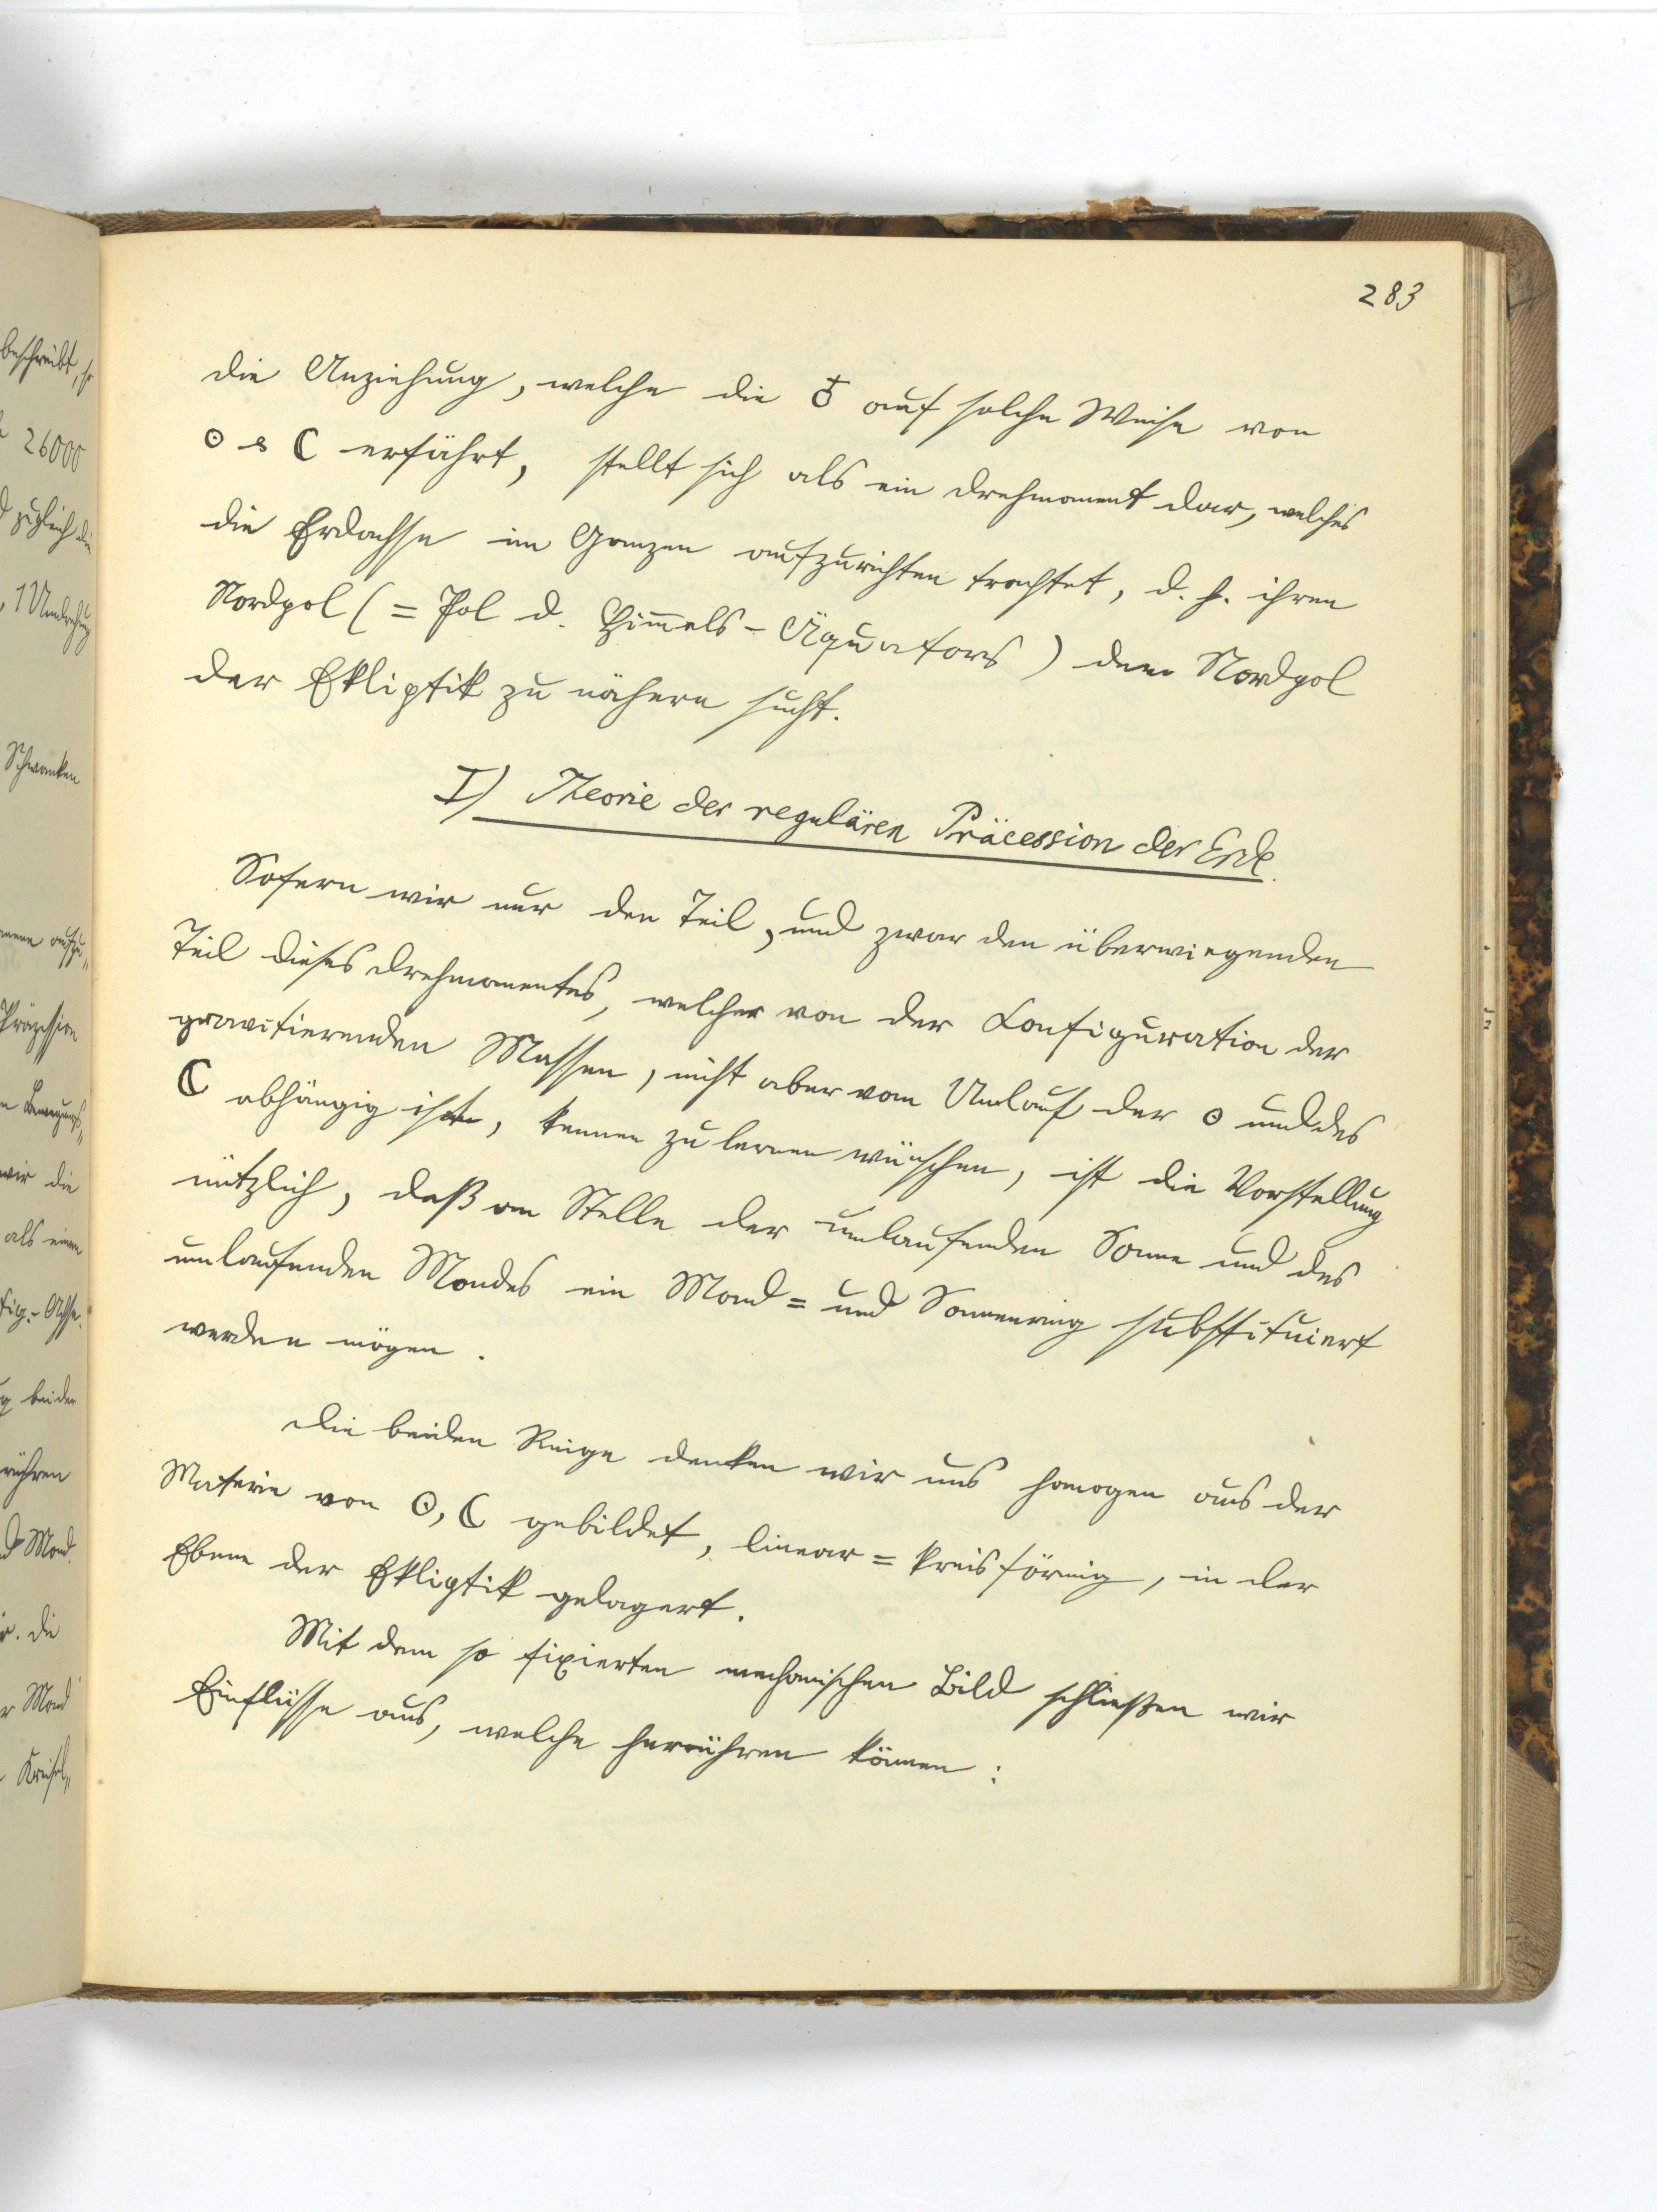 283
die Anziehung, welche die ♁ auf solche Weise von
☉ & ☾ erfährt, stellt sich als ein Drehmoment dar, welches
die Erdachse im Ganzen aufzurichten trachtet, d. h. ihren
Nordpol (= Pol d. Him̄els-Äquators) dem Nordpol
der Ekliptik zu nähern sucht.
I) Theorie der regulären Präcession der Erde.
Sofern wir nur den Teil, und zwar den überwiegenden
Teil dieses Drehmomentes, welcher von der Configuration der
gravitierenden Massen, nicht aber vom Umlauf der ☉ und des
☾ abhängig ist, kennen zu lernen wünschen, ist die Vorstellung
nützlich, daß an Stelle der umlaufenden Sonne und des
umlaufenden Mondes ein Mond= und Sonnenring substituiert
werden mögen.
Die beiden Ringe denken wir uns homogen aus der
Materie von ☉, ☾ gebildet, linear=kreisförmig, in der
Ebene der Ekliptik gelagert.
Mit dem so fixierten mechanischen Bild schließen wir
Einflüsse aus, welche herrühren können:
beschreibt, so
26000
zugleich die
, 1 Umdrehung
Schwanken
aufzu„
Präzession
Bewegungs„
wir die
als einen
fig.-Achse.
beider
rühren
Mond
. Die
Mond
Kreisel„